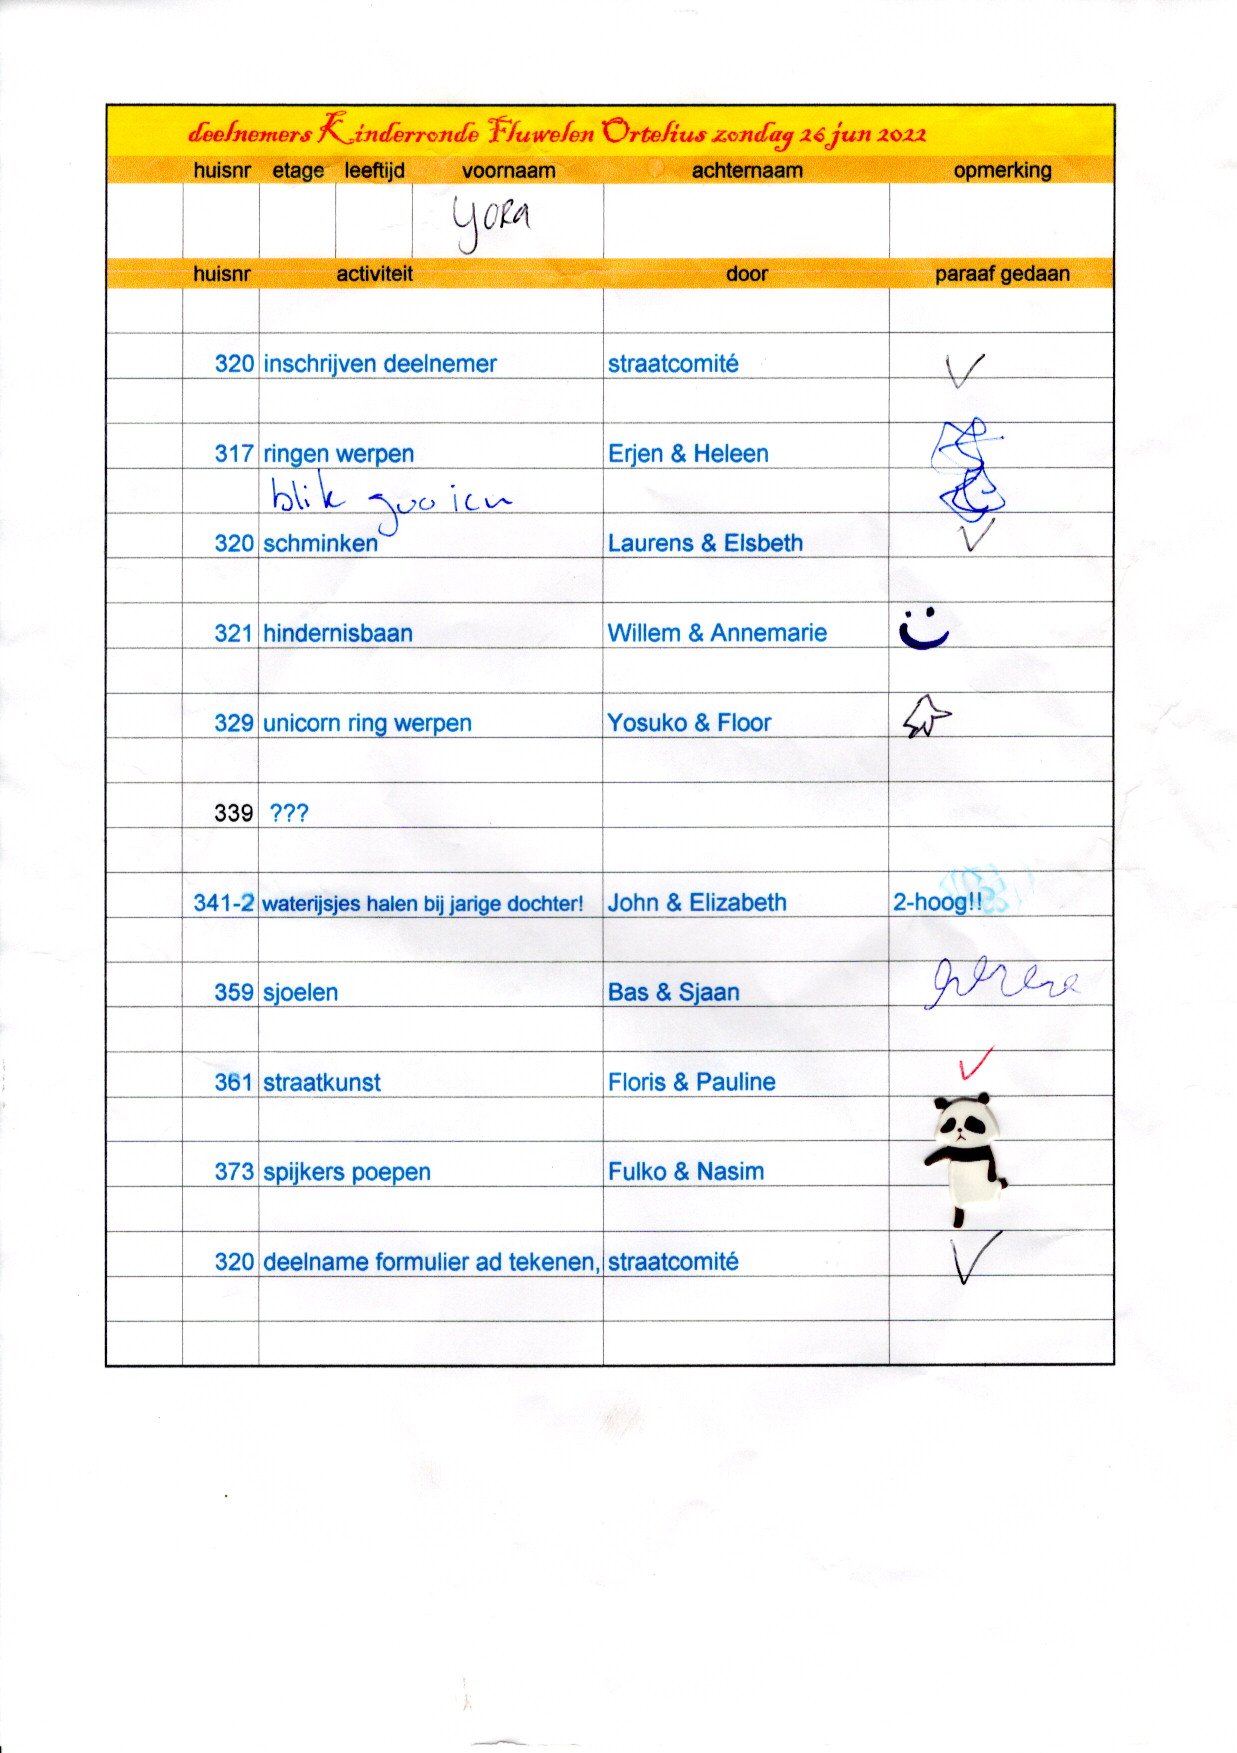 deelnemers Kinderronde Fluwelen Ortelius zondag 26 jun 2022
huisnr etage leeftijd voornaam achternaam opmerking
YORA
huisnr activiteit door paraaf gedaan
320 inschrijven deelnemer straatcomité
317 ringen werpen Erjen & Heleen
blik gooien
320 schminken Laurens & Elsbeth
321 hindernisbaan Willem & Annemarie
329 unicorn ring werpen Yosuko & Floor
339 ???
341-2 waterijsjes halen bij jarige dochter! John & Elizabeth 2-hoog!!
359 sjoelen Bas & Sjaan
361 straatkunst Floris & Pauline
373 spijkers poepen Fulko & Nasim
320 deelname formulier ad tekenen, straatcomité